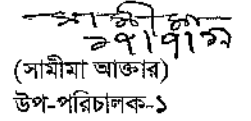 সামীমা
২৭/৭/২২
(সামীমা আক্তার)
উপ-পরিচালক-১